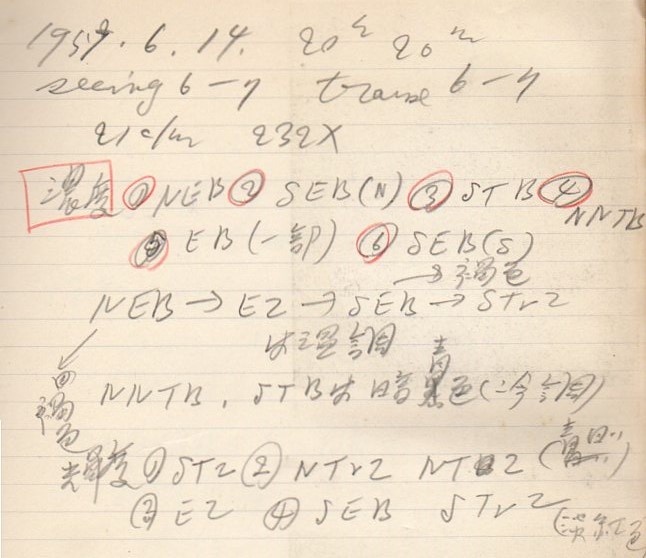 1957. 6. 14. 20h 20m
seeing 6-7 transe 6-7
21c/m 232X
濃度 ① NEB ② SEB(N) ③ STB ④ NNTB
⑤ EB(一部) ⑥ SEB(S)
→褐色
NEB → EZ → SEB → STrZ
は温調
NNTB. STBは暗青色(冷調)
褐色
輝度 ① STZ ② NTrZ NTZ (青
③ EZ ④ SEB STrZ
(淡紅色